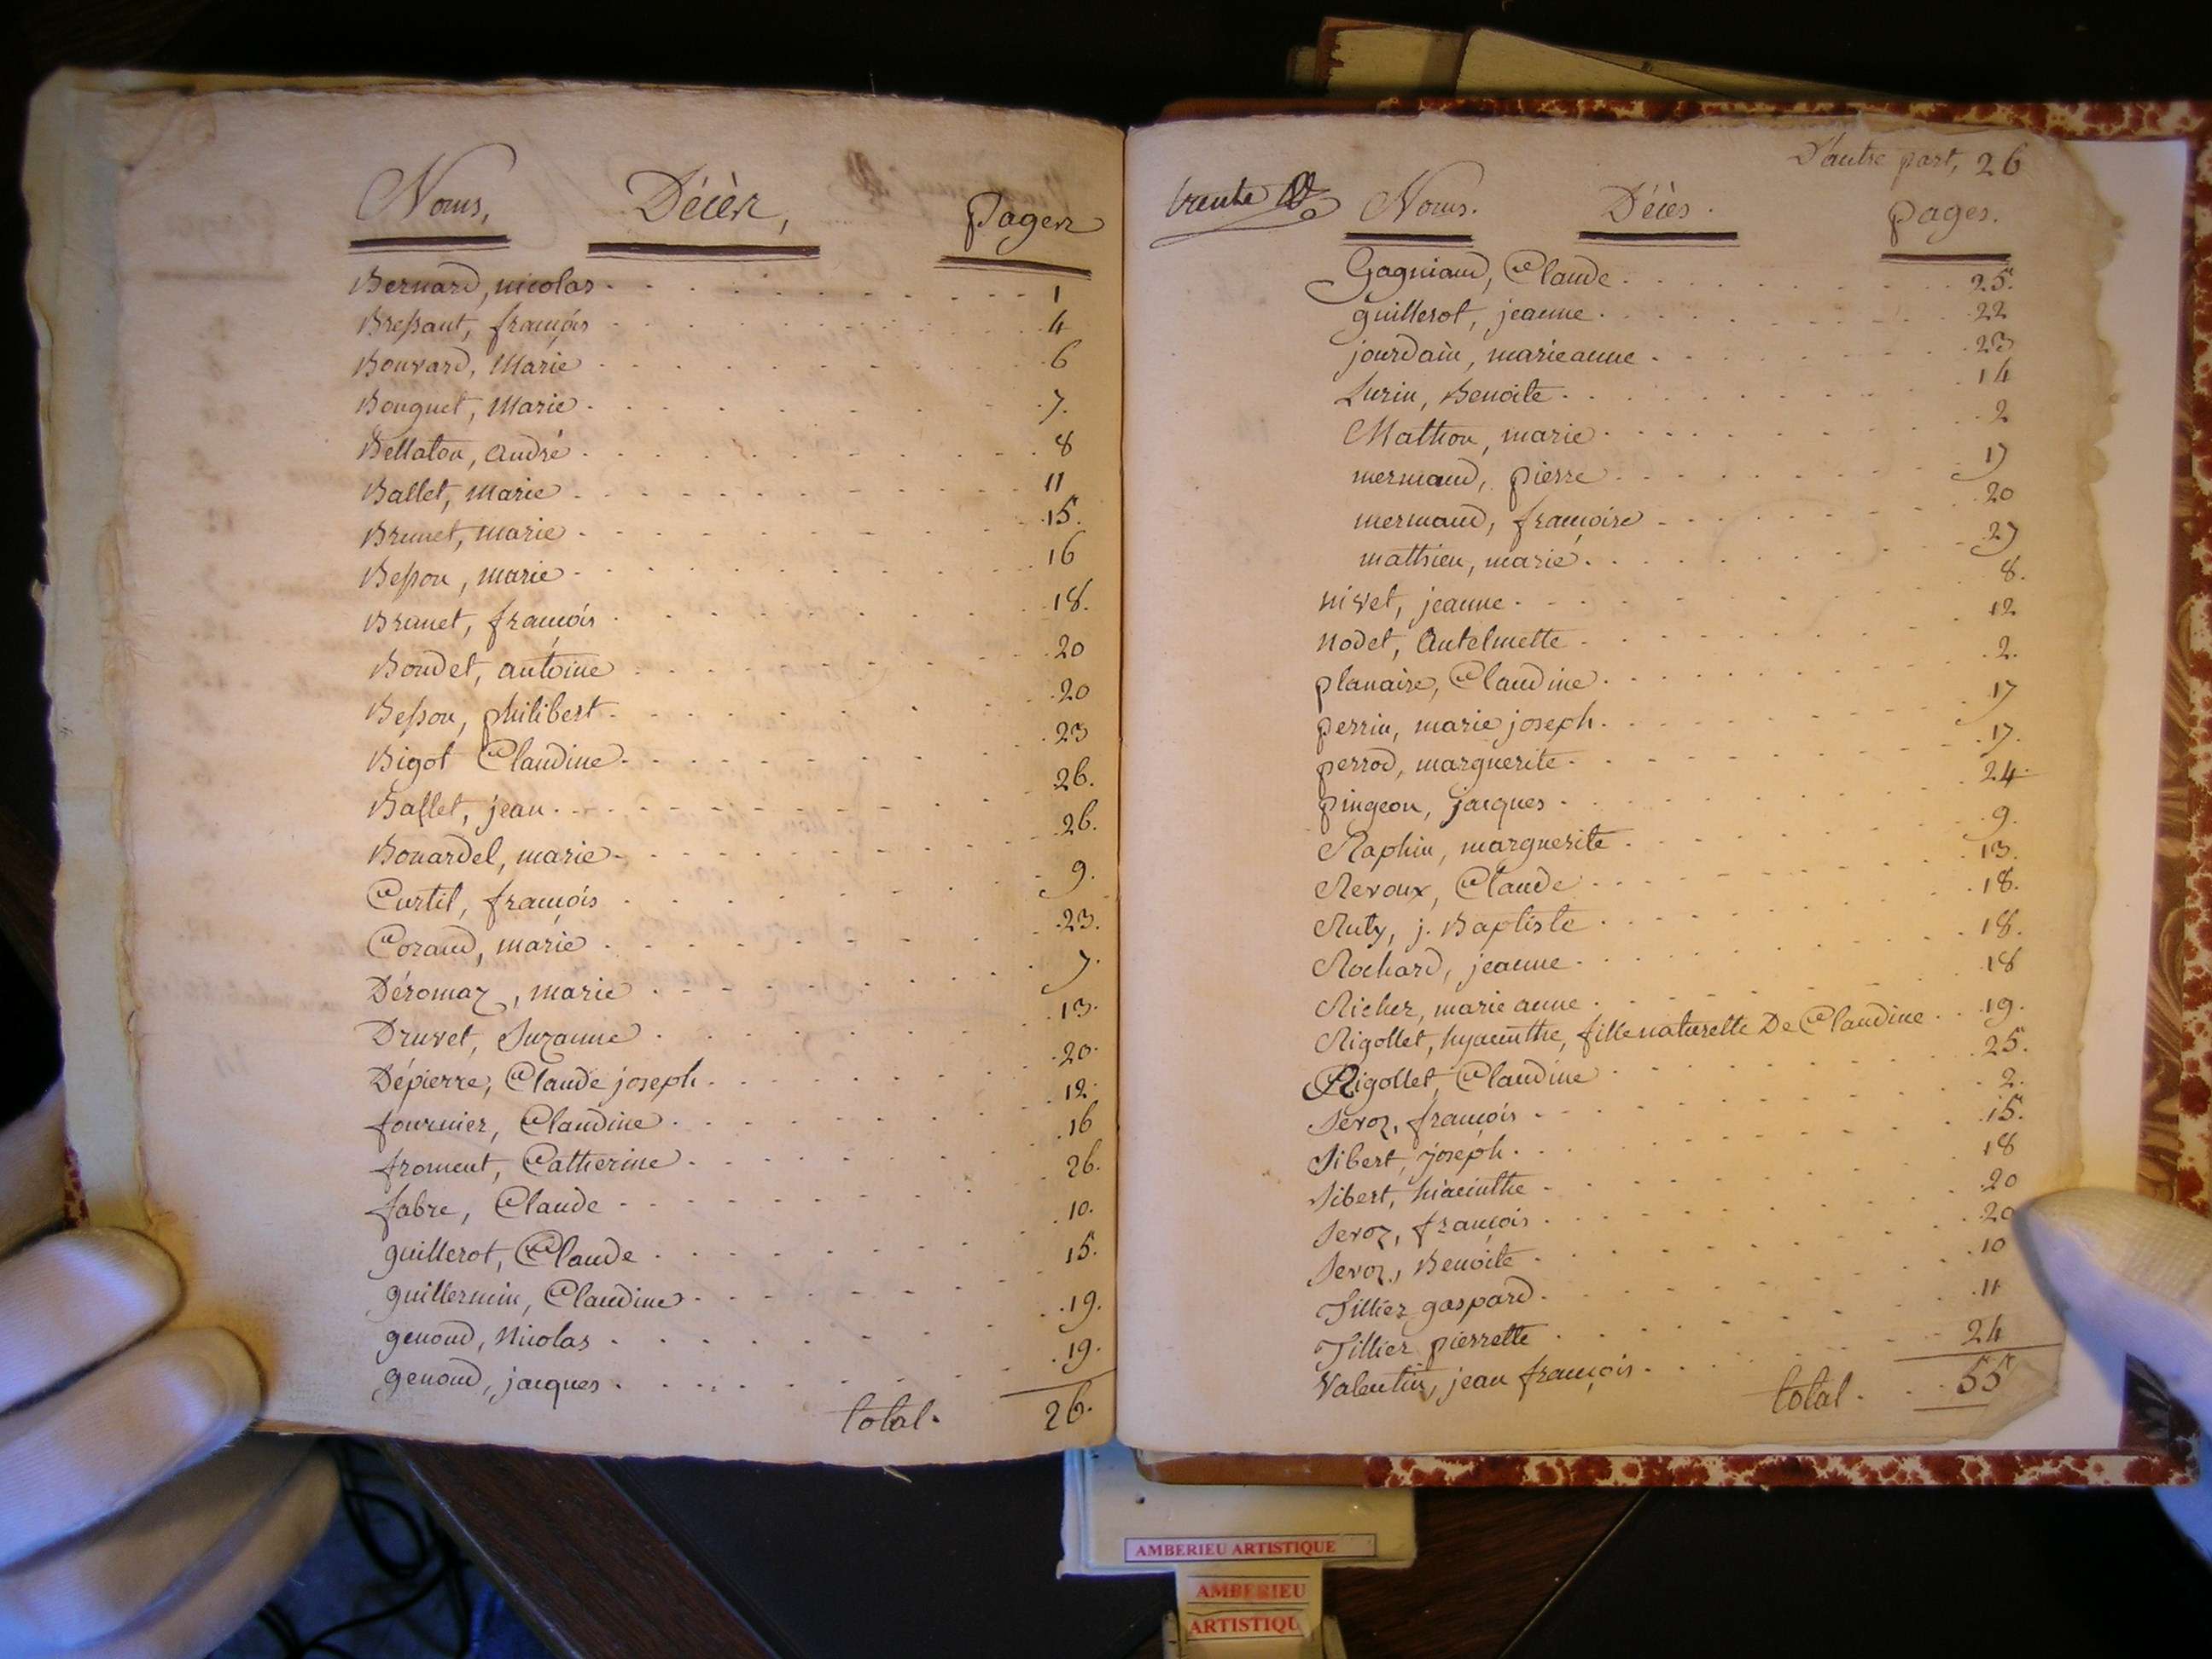 Noms, Décès, Pages
Bernard, nicolas 1
Bressant, françois 4
Bouvard, Marie 6
Bouquet, Marie 7.
Bellaton, andré 8
Ballet, marie 11
Brunet, marie 15.
Besson, marie 16
Brunet, françois 18.
Boudet, antoine 20
Besson, philibert 20
Bigot Claudine 23
Ballet, jean 26.
Bouardel, marie 26.
Curtil, françois 9.
Coraud, marie 23.
Déromaz, marie 7.
Druvet, Suzanne 13.
Dépierre, Claude joseph 20.
fournier, Claudine 12.
froment, Catherine 16
fabre, Claude 26.
guillerot, Claude 10.
guillermin, Claudine 15.
genoud, Nicolas 19.
genoud, jacques 19.
total. 26.
D'autre part, 26
trente
Noms. Décès. pages.
Gagniaud, Claude 25.
guillerot, jeanne 22
jourdain, marieanne 23
Lurin, Benoite 14
Mathon, marie 2
mermand, pierre 17
mermand, françoise 20
mathieu, marie 27
nivet, jeanne 8.
nodet, Antelmette 12
planaise, Claudine 2.
perrin, marie joseph 17
perrod, marguerite 17.
pingeon, jacques 24.
Raphin, marguerite 9.
Revoux, Claude 13.
Ruty, j. Baptiste 18.
Rochard, jeanne 18.
Richer, marie anne 18
Rigollet, hyacinthe, fille naturelle De Claudine 19.
Rigollet, Claudine 25.
Servoz, françois 2.
Sibert, joseph 15.
Sibert, hiacinthe 18
Servoz, françois 20
Servoz, Benoite 20
Tillier gaspard 10
Tillier pierrette 11
Valentin, jean françois 24
total 55
AMBERIEU ARTISTIQUE
AMBERIEU
ARTISTIQU